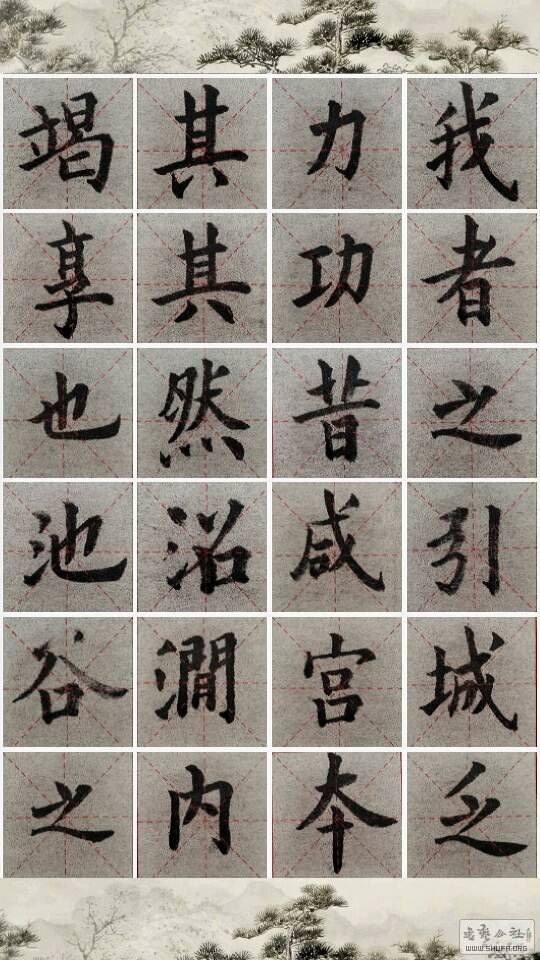 竭其力我
享其功者
也然昔之
池沼咸引
谷澗宮城
之内夲乏
书艺公社
WWW.SHUFA.ORG